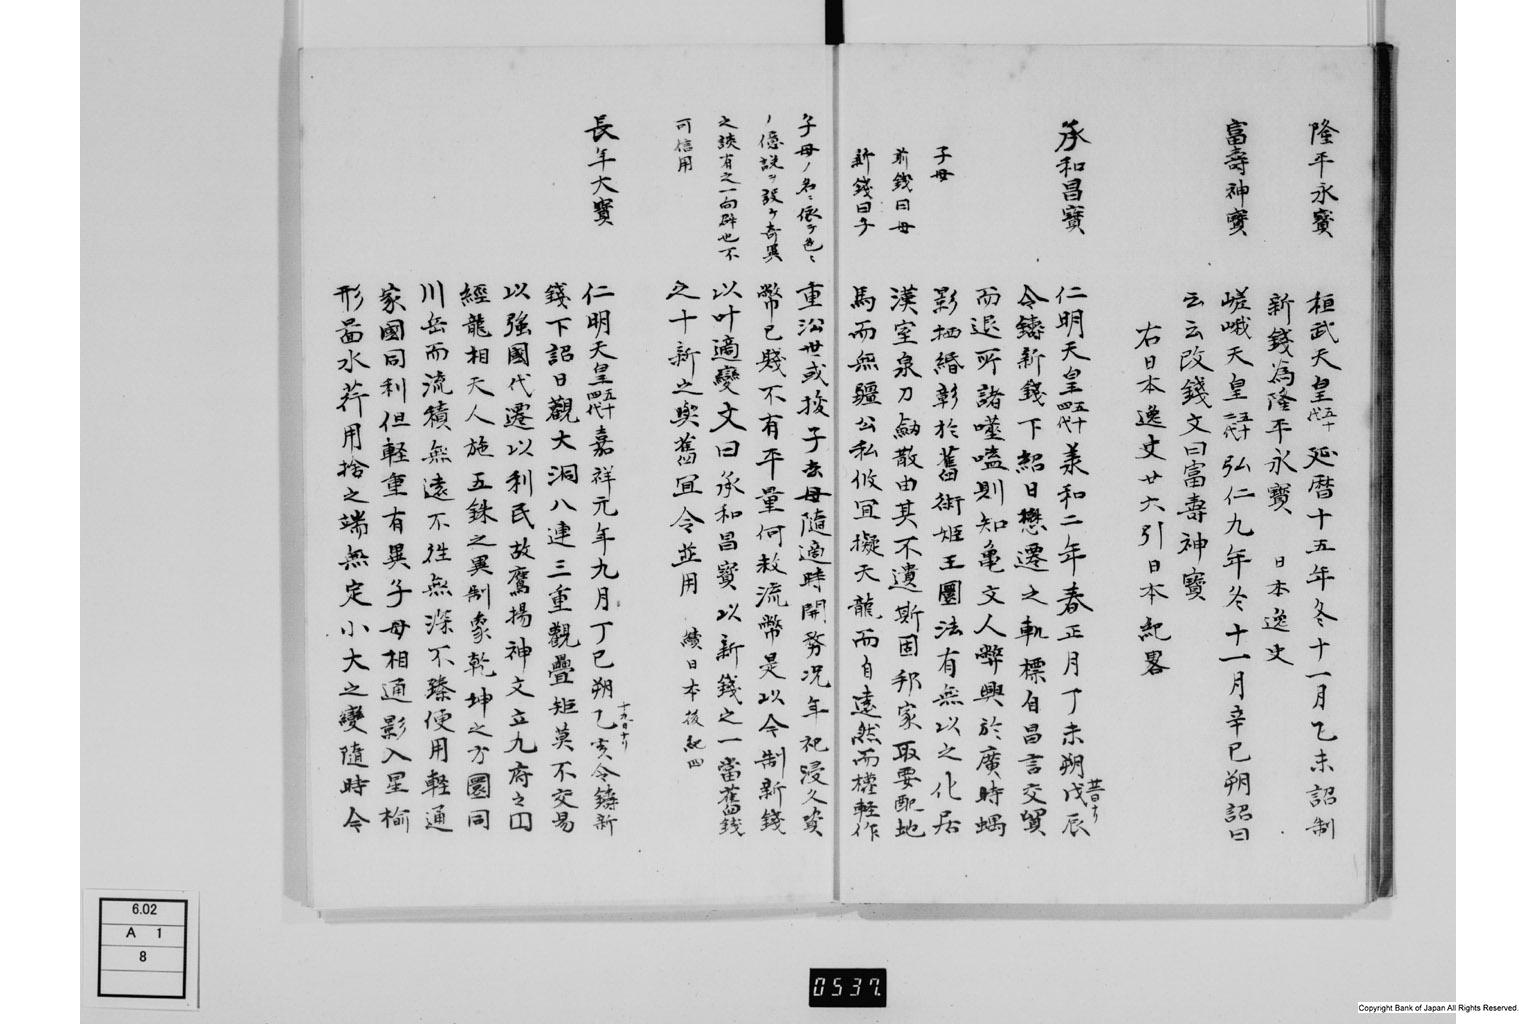 隆平永寳
桓武天皇五十代延暦十五年冬十一月乙未詔制
新錢為隆平永寳　日本逸史
富壽神寳
嵯峨天皇五十二代弘仁九年冬十一月辛巳朔詔曰
云云改錢文曰富壽神寳
右日本逸史廿六引日本紀畧
承和昌寳
仁明天皇五十四代羕和二年春正月丁未朔戊辰
令鑄新錢下紹日懋遷之軌標自昌言交貿
而退所諸噬嗑則知亀文人弊興於廣時蝸
影栖緡彰於舊術姫王圜法有無以之化居
子母
漢室泉刀紬散由其不遺斯固邦家取要配地
前錢曰母
馬而無疆公私攸冝擬天龍而自遠然而權軽作
新錢曰子
重沿世或援子去母隨適時開務况年祀浸久資
幣已賤不有平量何救流幣是以今制新錢
以叶適變文曰承和昌寳以新錢之一當舊錢
之十新之與舊冝令並用　續日本後紀四
之談有之一向辟也不
可信用
長年大寳
仁明天皇五十四代嘉祥元年九月丁巳朔乙亥令鑄新
十九日ナリ
錢下詔日觀大洞八連三重觀疊矩莫不交易
以強國代遷以利民故鷹揚神文立九府之囗
經龍相天人施五銖之異制象乾坤之方圜同
川岳而流積無遠不徃無深不臻便用軽通
家國同利但軽重有異子母相通影入星榆
形葘水荇用捨之端無定小大之變隨時令
6.02
A 1
8
0537
Copyright Bank of Japan All Rights Reserved.